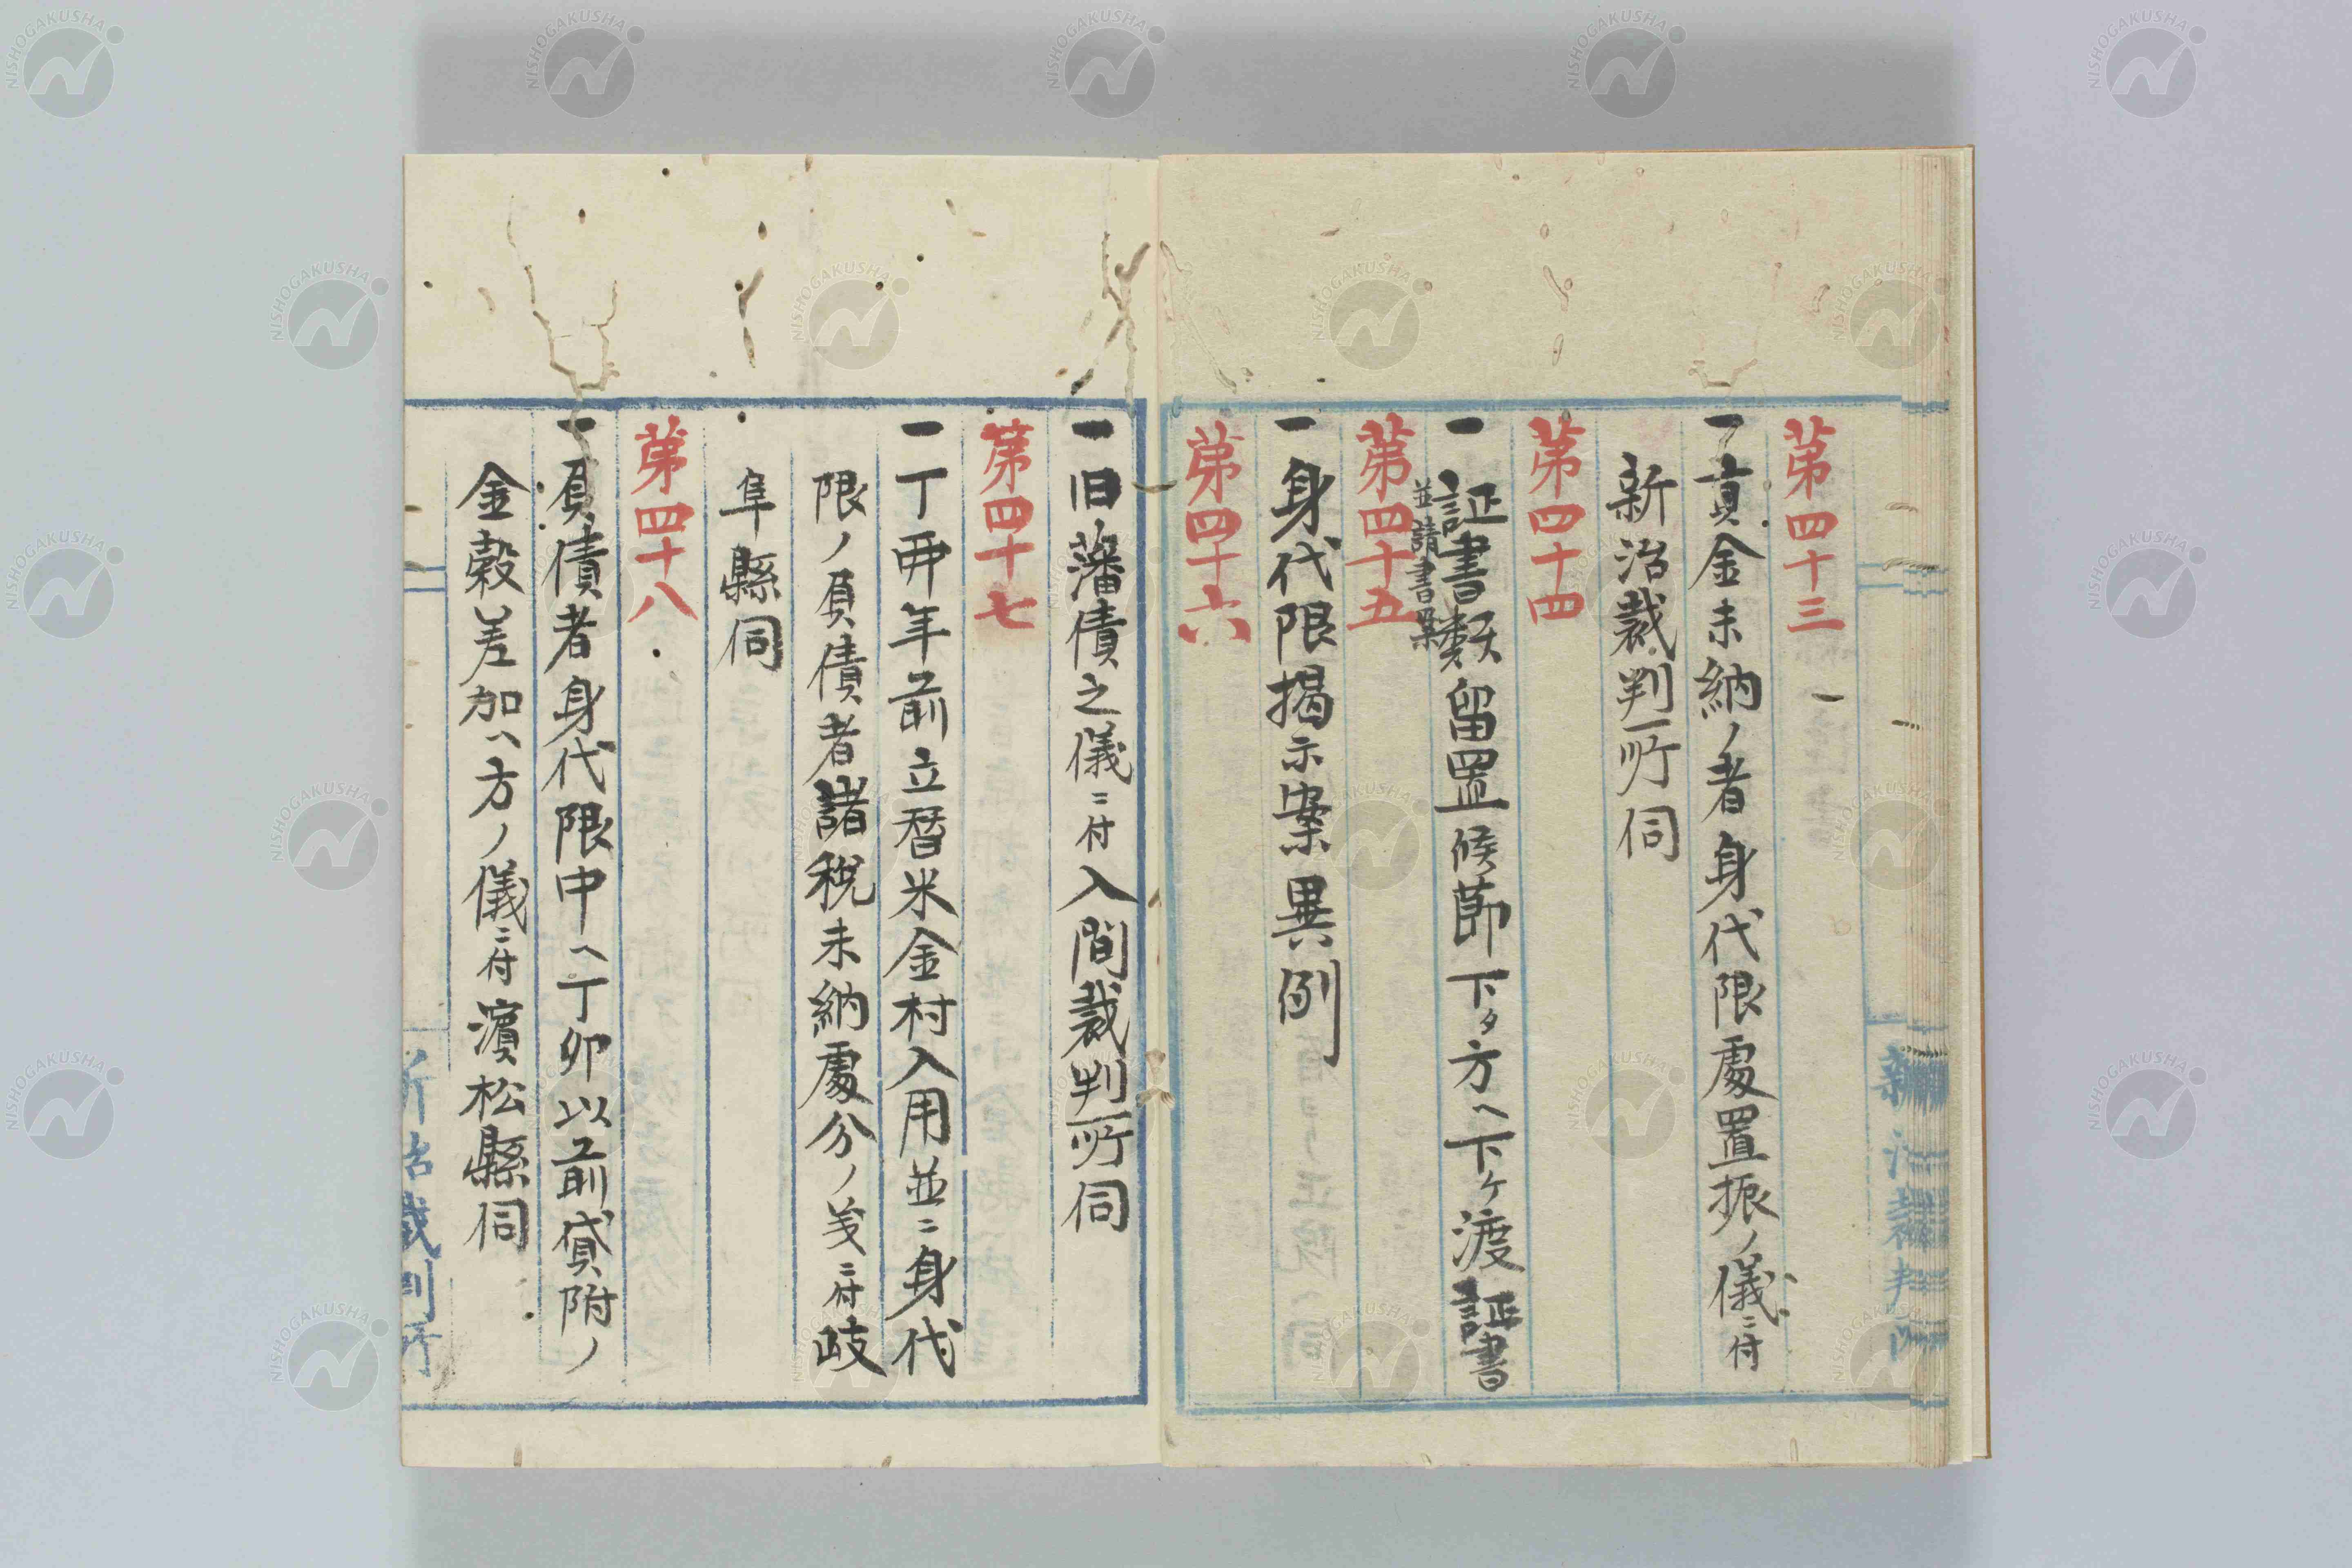 第四十三
一貢金未納ノ者身代限處置振ノ儀ニ付
新治裁判所伺
第四十四
一証書類留置候節下タ方ヘ下ケ渡証書
並請書案
第四十五
一身代限掲示案異例
第四十六
一旧藩債之儀ニ付入間裁判所伺
第四十七
一丁卯年前立暦米金村入用並ニ身代
限ノ負債者諸税未納處分ノ義ニ付岐
阜縣伺
第四十八
一負債者身代限中ヘ丁卯以前貸附ノ
金穀差加ヘ方ノ儀ニ付濱松縣伺
新治裁判所
NISHOGAKUSHA